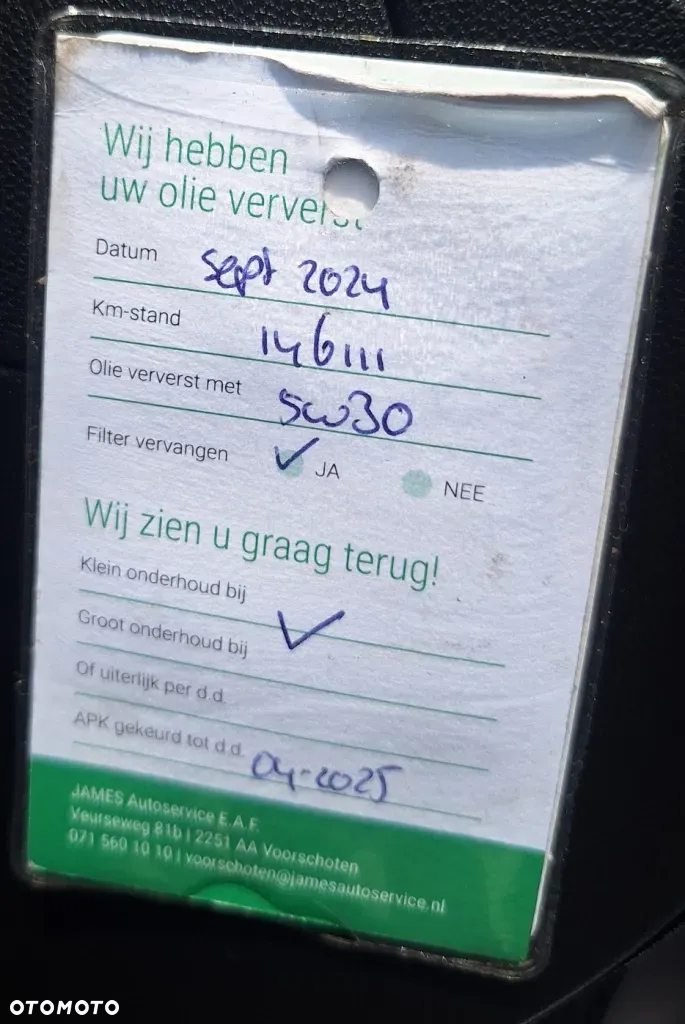 Wij hebben
uw olie ververst
Datum sept 2024
Km-stand 146111
Olie ververst met 5w30
Filter vervangen ✓ JA NEE
Wij zien u graag terug!
Klein onderhoud bij
Groot onderhoud bij ✓
Of uiterlijk per d.d.
APK gekeurd tot d.d. 04-2025
JAMES Autoservice E.A.F.
Veurseweg 81b | 2251 AA Voorschoten
071 560 10 10 | voorschoten@jamesautoservice.nl
OTOMOTO